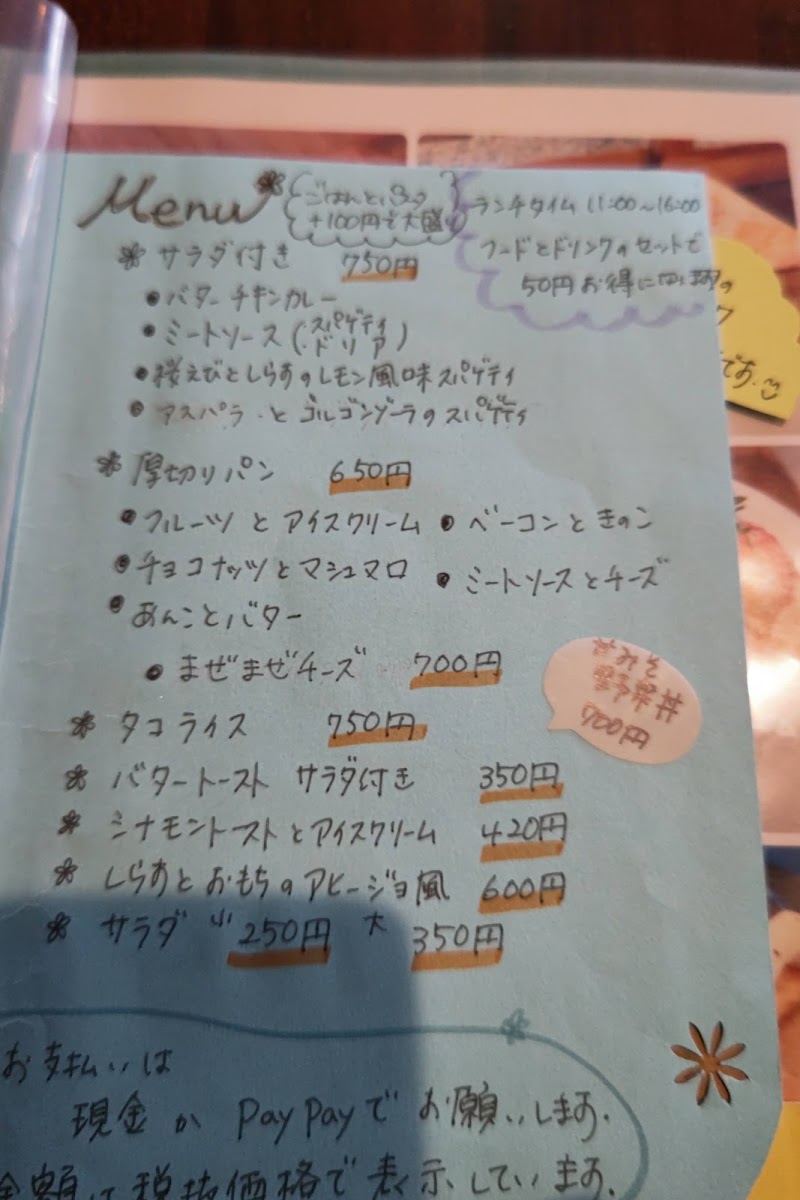 Menu
ごはんとパスタ
+100円で大盛り
ランチタイム 11:00~16:00
フードとドリンクのセットで
50円お得に
* サラダ付き 750円
• バターチキンカレー
• ミートソース(・スパゲティ ・ドリア)
• 桜えびとしらすのレモン風味スパゲティ
• アスパラ・とゴルゴンゾーラのスパゲティ
* 厚切りパン 650円
• フルーツとアイスクリーム • ベーコンときのこ
• チョコナッツとマシュマロ • ミートソースとチーズ
• あんことバター
• まぜまぜチーズ 700円
甘みそ
野菜丼
700円
* タコライス 750円
* バタートースト サラダ付き 350円
* シナモントーストとアイスクリーム 420円
* しらすとおもちのアヒージョ風 600円
* サラダ 小 250円 大 350円
お支払いは
現金か PayPayでお願いします.
金額は税抜価格で表示しています.
です.